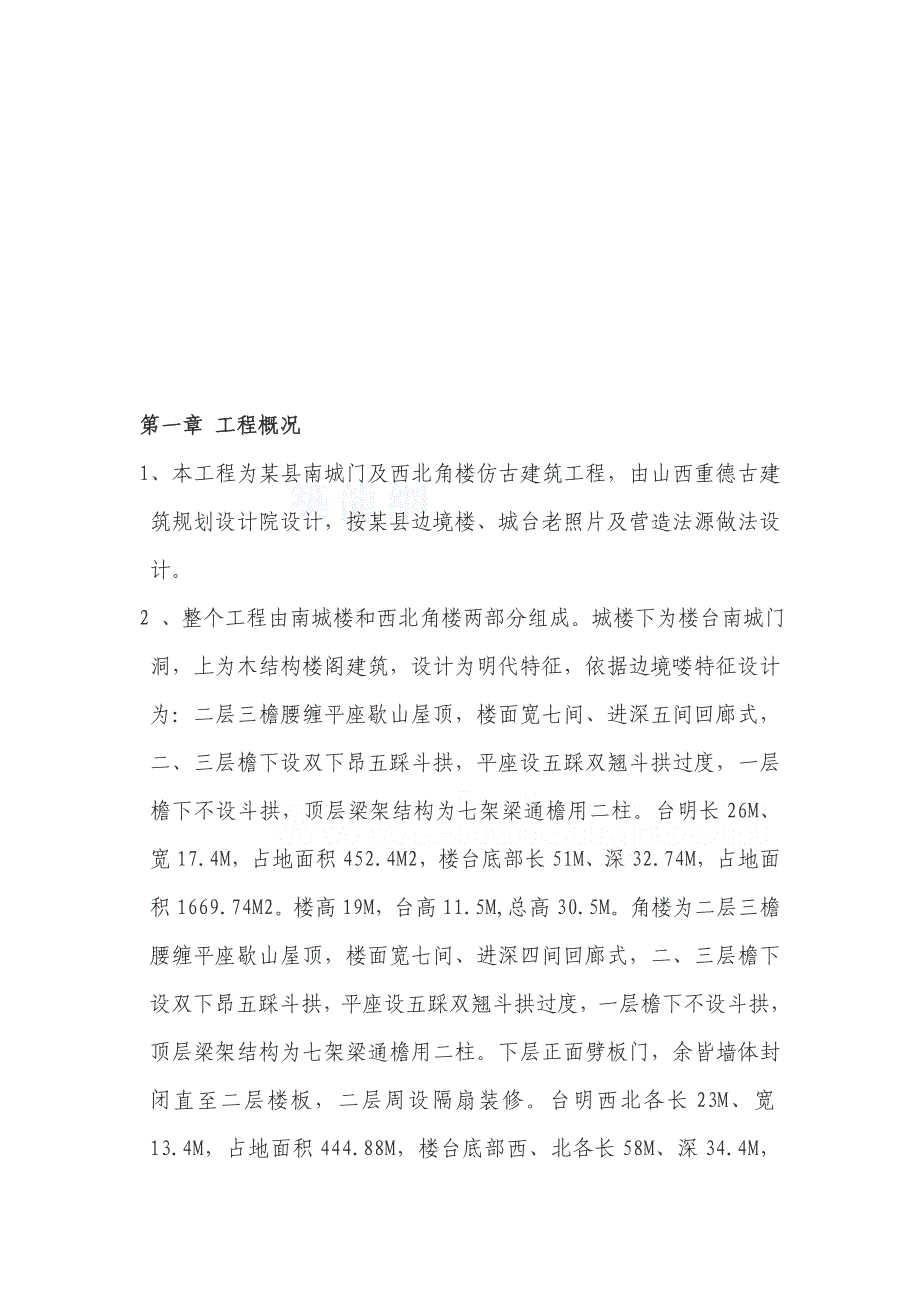 第一章 工程概况
1、本工程为某县南城门及西北角楼仿古建筑工程，由山西重德古建
筑规划设计院设计，按某县边境楼、城台老照片及营造法源做法设
计。
2 、整个工程由南城楼和西北角楼两部分组成。城楼下为楼台南城门
洞，上为木结构楼阁建筑，设计为明代特征，依据边境喽特征设计
为：二层三檐腰缠平座歇山屋顶，楼面宽七间、进深五间回廊式，
二、三层檐下设双下昂五踩斗拱，平座设五踩双翘斗拱过度，一层
檐下不设斗拱，顶层梁架结构为七架梁通檐用二柱。台明长 26M、
宽 17.4M，占地面积 452.4M2，楼台底部长 51M、深 32.74M，占地面
积 1669.74M2。楼高 19M，台高 11.5M,总高 30.5M。角楼为二层三檐
腰缠平座歇山屋顶，楼面宽七间、进深四间回廊式，二、三层檐下
设双下昂五踩斗拱，平座设五踩双翘斗拱过度，一层檐下不设斗拱，
顶层梁架结构为七架梁通檐用二柱。下层正面劈板门，余皆墙体封
闭直至二层楼板，二层周设隔扇装修。台明西北各长 23M、宽
13.4M，占地面积 444.88M，楼台底部西、北各长 58M、深 34.4M，